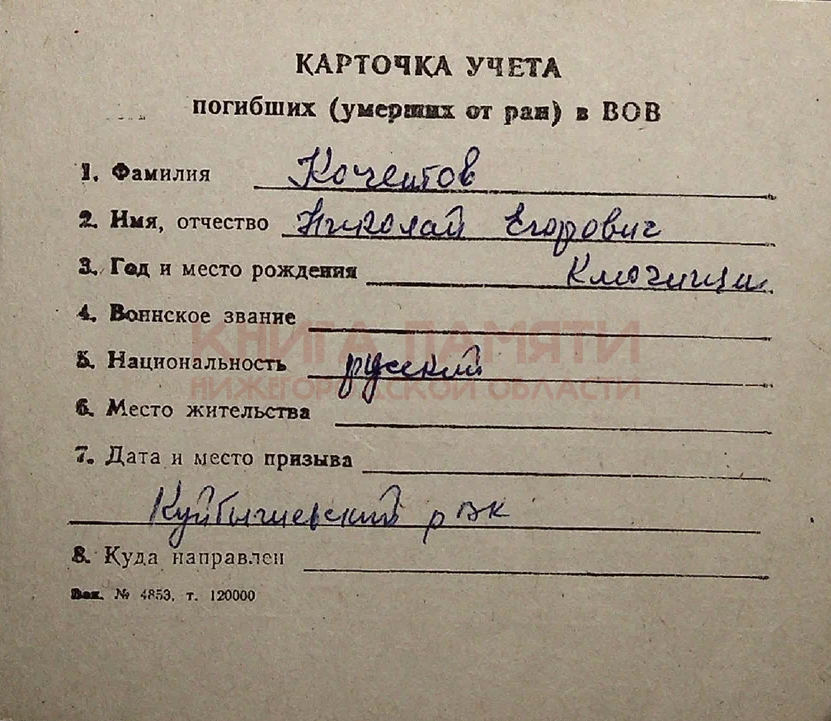 КАРТОЧКА УЧЕТА
погибших (умерших от ран) в ВОВ
1. Фамилия Кочентов
2. Имя, отчество Николай Егорович
3. Год и место рождения Ключищи
4. Воинское звание
КНИГА ПАМЯТИ
5. Национальность русский
НИЖЕГОРОДСКОЙ ОБЛАСТИ
6. Место жительства
7. Дата и место призыва
Куйбышевский рвк
8. Куда направлен
Зак. № 4853. т. 120000